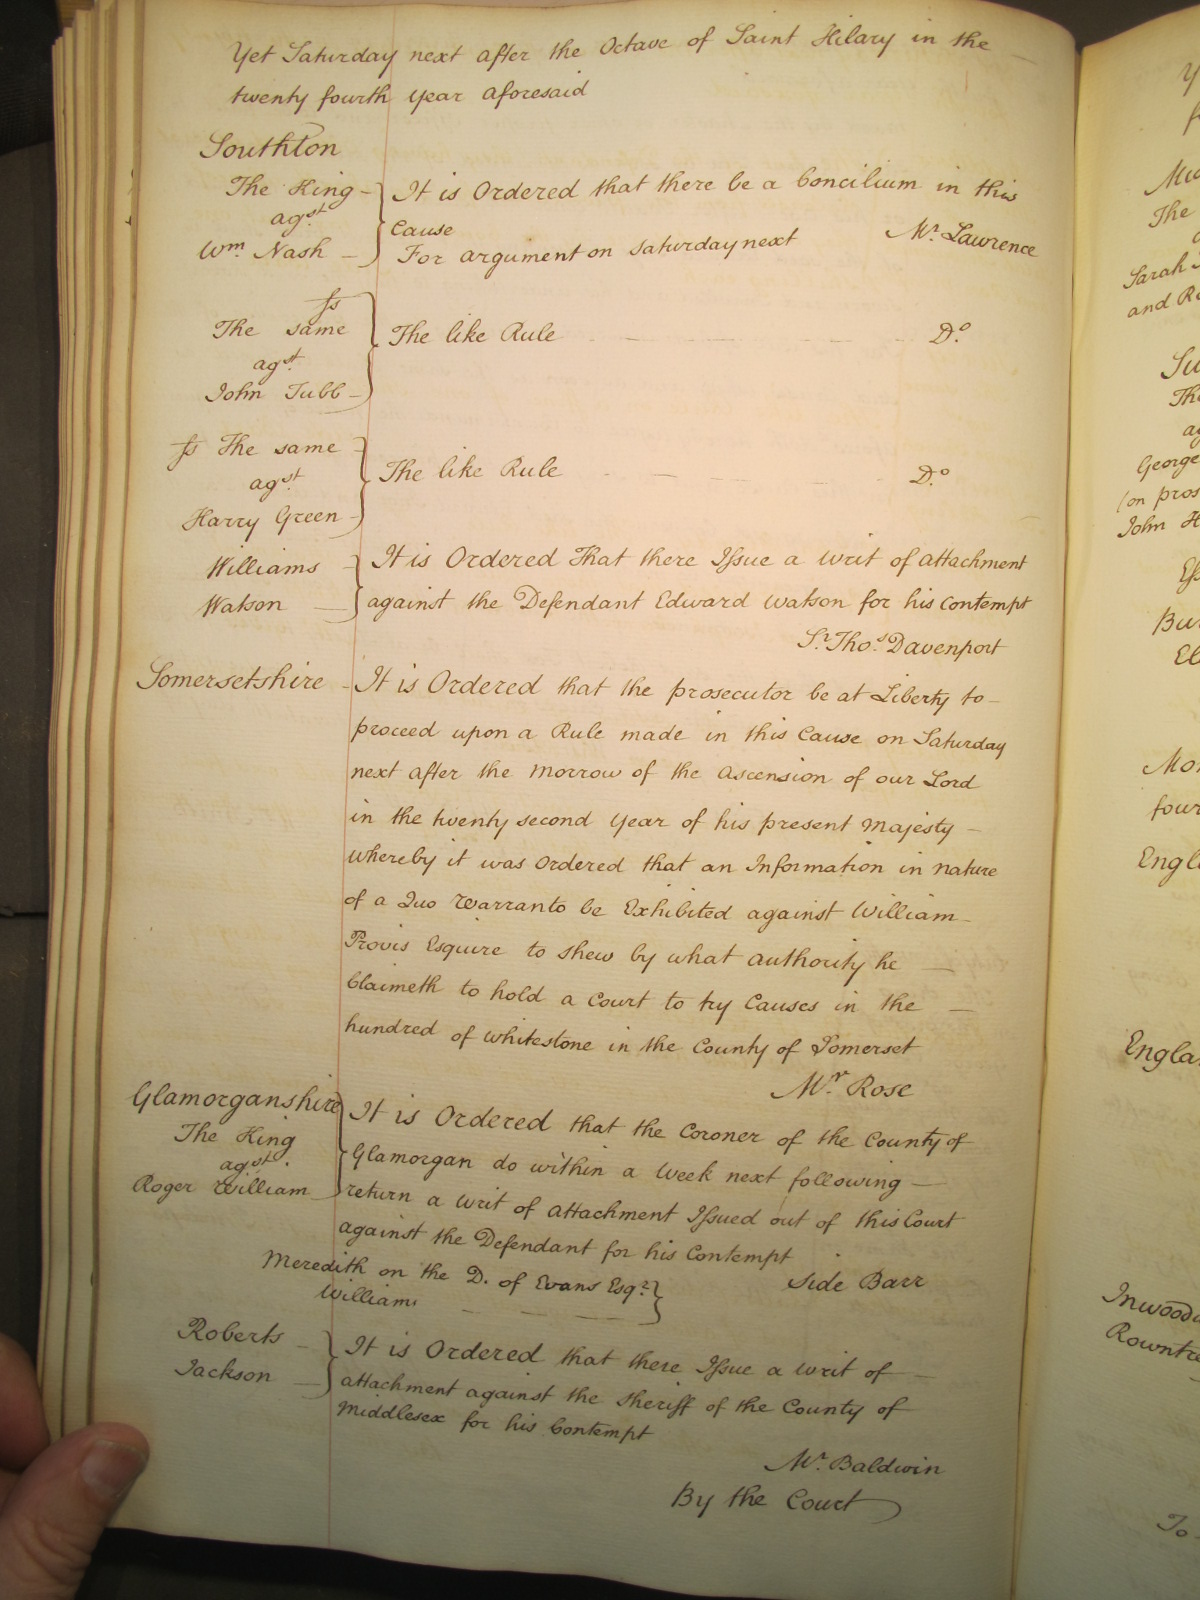 Yet Saturday next after the Octave of Saint Hilary in the
twenty fourth year aforesaid
Southton
The King
agst
Wm. Nash
It is Ordered that there be a Concilium in this
Cause
For argument on Saturday next
Mr. Lawrence
ſs
The same
agst.
John Tubb
The like Rule
Do.
ſs The same
agst.
Harry Green
The like Rule
Do.
Williams
Watson
It is Ordered That there Iſsue a writ of attachment
against the Defendant Edward Watson for his Contempt
Sr. Thos. Davenport
Somersetshire
It is Ordered that the prosecutor be at Liberty to
proceed upon a Rule made in this Cause on Saturday
next after the Morrow of the ascension of our Lord
in the twenty second year of his present Majesty
whereby it was Ordered that an Information in nature
of a Quo Warranto be Exhibited against William
Provis Esquire to shew by what authority he
Claimeth to hold a Court to try Causes in the
hundred of Whitestone in the County of Somerset
Mr. Rose
Glamorganshire
The King
agst.
Roger William
It is Ordered that the Coroner of the County of
Glamorgan do within a week next following
return a writ of attachment Iſsued out of this Court
against the Defendant for his Contempt
Side Barr
Meredith on the D. of Evans Esqr.
Williams
Roberts
Jackson
It is Ordered that there Iſsue a writ of
attachment against the Sheriff of the County of
Middlesex for his Contempt
Mr. Baldwin
By the Court
The
Sarah
George
John H
Engl
Englan
To